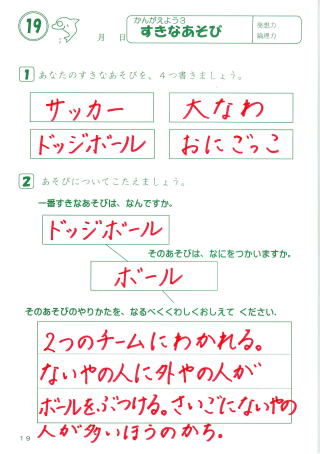 19
かんがえよう3
すきなあそび
発想力
論理力
月 日
1 あなたのすきなあそびを、4つ書きましょう。
サッカー 大なわ
ドッジボール おにごっこ
2 あそびについてこたえましょう。
一番すきなあそびは、なんですか。
ドッジボール
そのあそびは、なにをつかいますか。
ボール
そのあそびのやりかたを、なるべくくわしくおしえて ください。
2つのチームにわかれる。
ないやの人に外やの人が
ボールをぶつける。さいごにないやの
人が多いほうのかち。
19